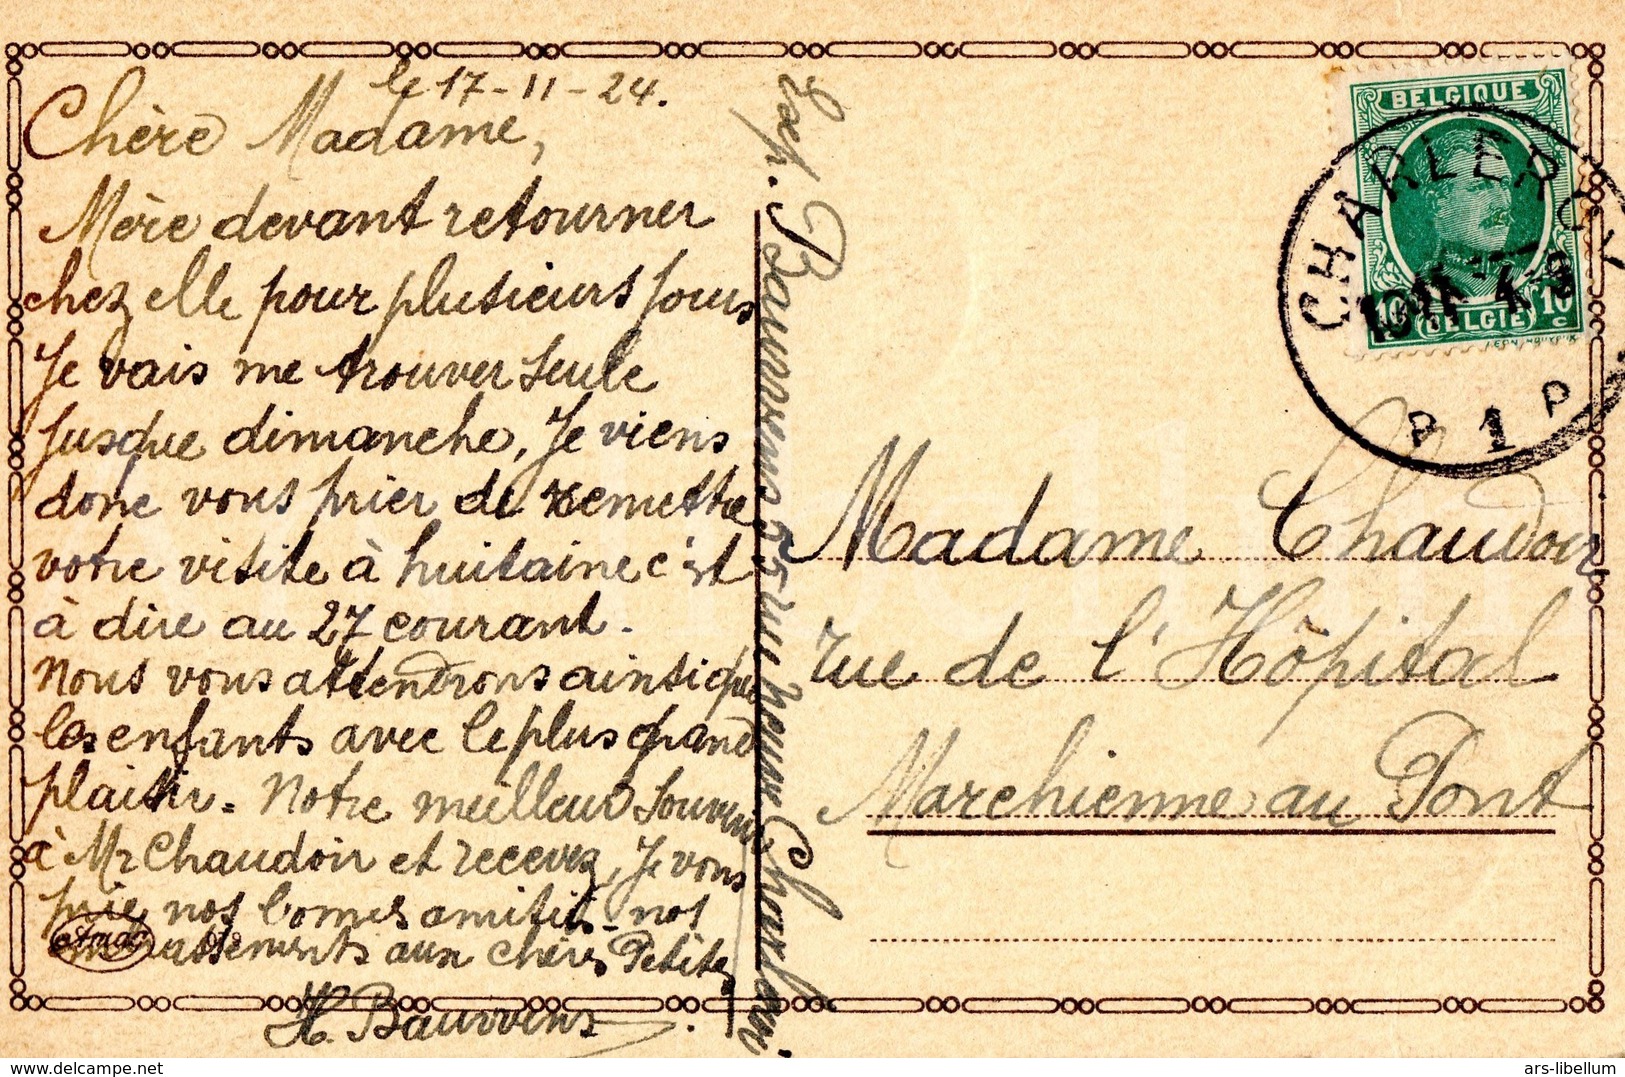 le 17-11-24.
Chère Madame,
Mère devant retourner
chez elle pour plusieurs jours
Je vais me trouver seule
jusque dimanche, Je viens
donc vous prier de remettre
votre visite à huitaine c'est
à dire au 27 courant.
Nous vous attendrons ainsi que
les enfants avec le plus grand
plaisir. Notre meilleur souvenir
à Mr Chaudoir et recevez, Je vous
prie, nos bonnes amitiés. nos
embrassements aux chères Petites
H. Bauwens.
Exp. Bauwens 55 rue neuve Charleroi
BELGIQUE
BELGIË
10 c
10 c
CHARLEROY
P 1 P
Madame Chaudoir
rue de l'Hôpital
Marchienne au Pont
www.delcampe.net
ars-libellum